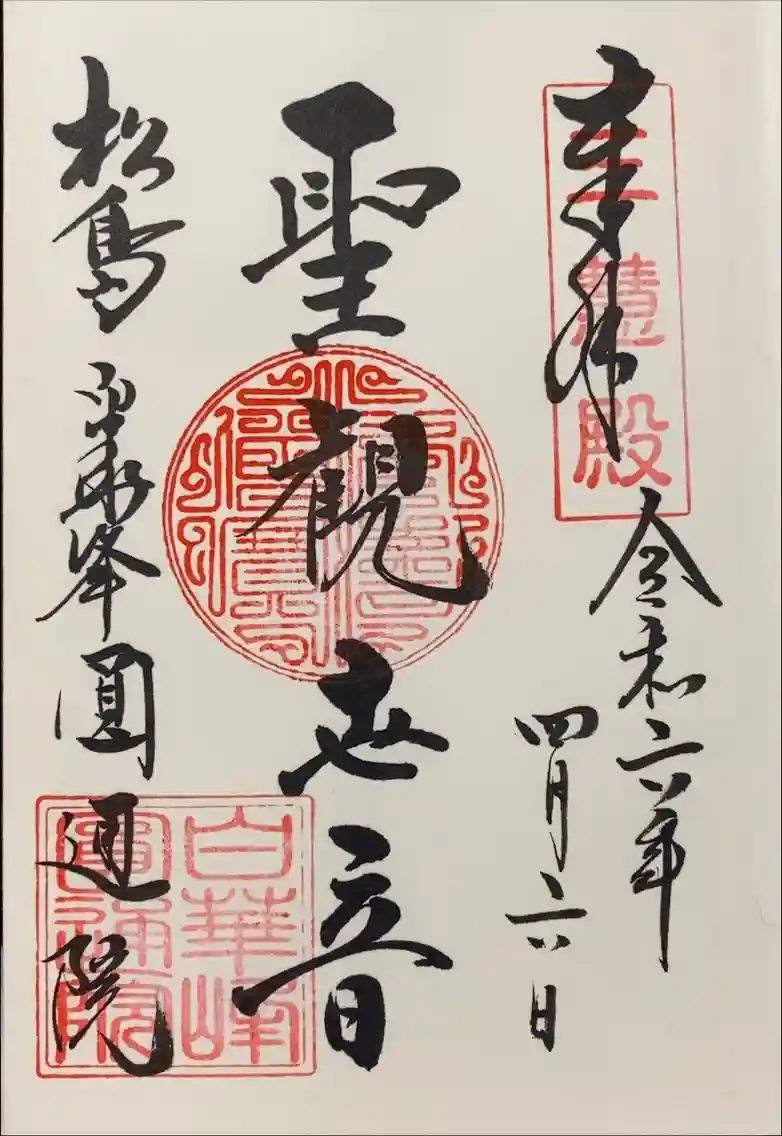 奉拝
三慧殿
令和六年
四月六日
聖観世音
松島 白華峰 圓通院
白華峰
圓通院